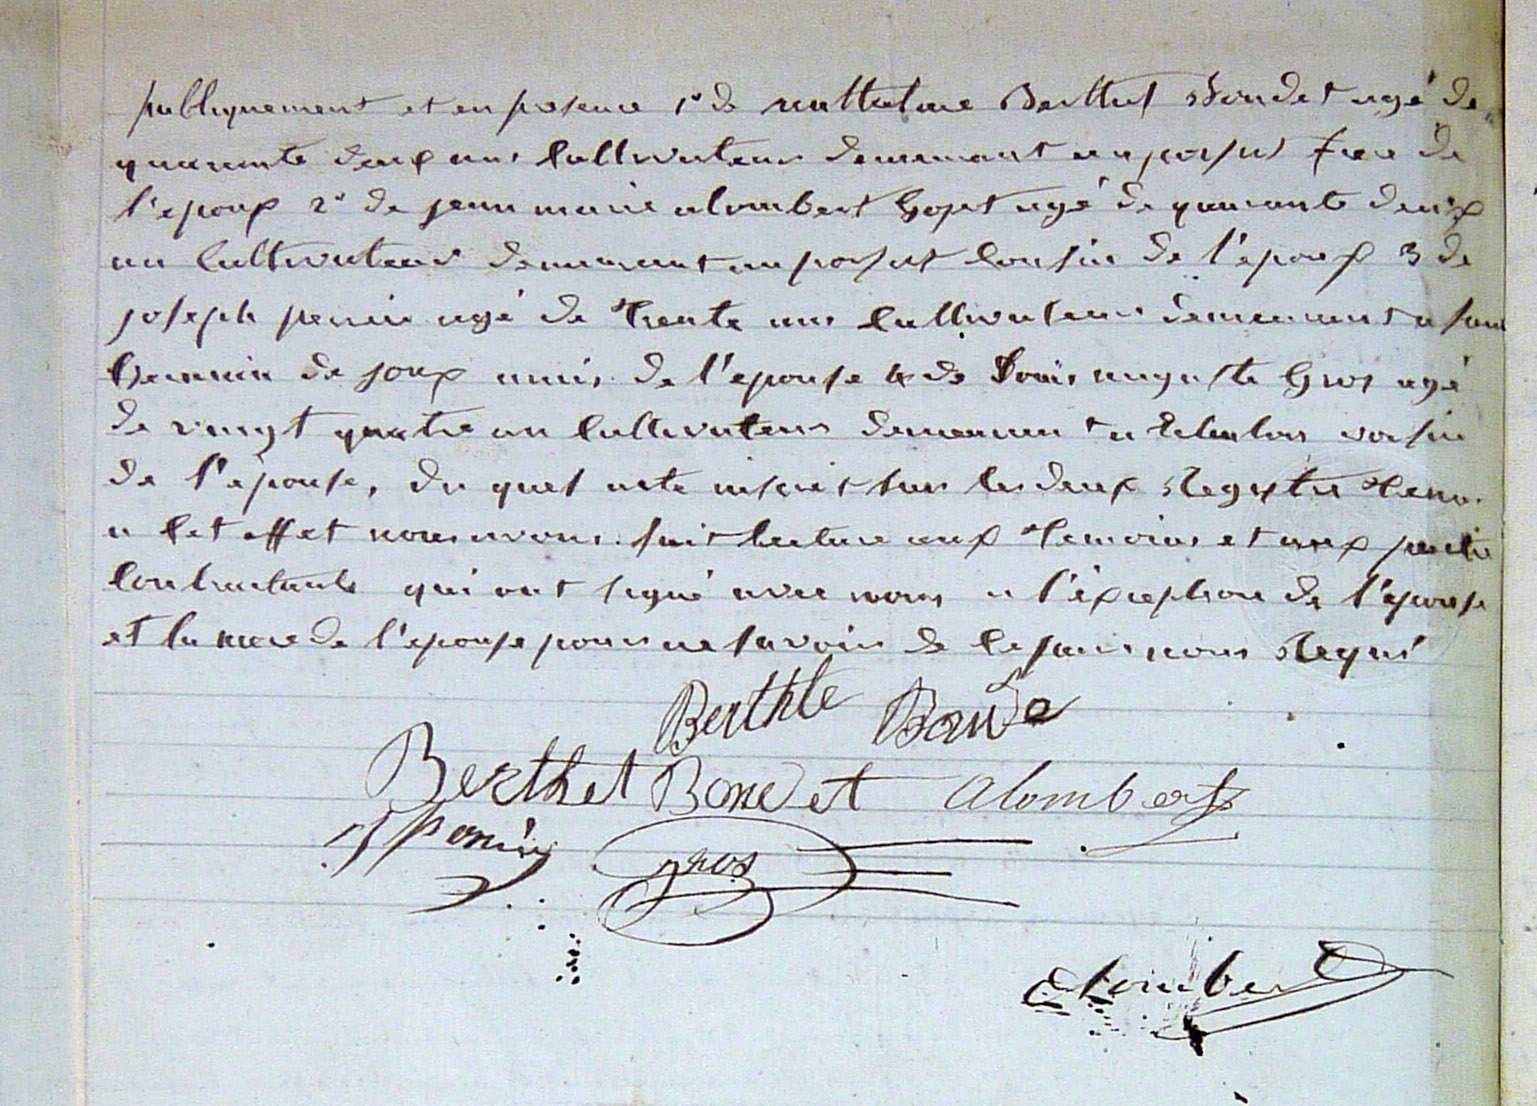 publiquement et en presence 1° de Berthet Bondet agé de
quarante deux ans Cultivateur demeurant frere de
l'epoux 2° de jean marie alombert agé de quarante deux
an Cultivateur demeurant Cousin de l'epoux 3 de
joseph perrin agé de trente ans Cultivateur demeurant a saint
Germain de joux amis de l'epouse 4 de Louis auguste Gros agé
de vingt quatre an Cultivateur demeurant a voisin
de l'epouse, du quel acte inscrit sur les deux Registre tenu
a Cet effet nous avons fait lecture aux temoins et aux partie
Contractante qui ont signé avec nous a l'éxception de l'épouse
et la mere de l'epouse pour ne savoir de Ce faire nous Requi
Berthte Bonde
Berthet Bondet alombert
perrin gros
alombert